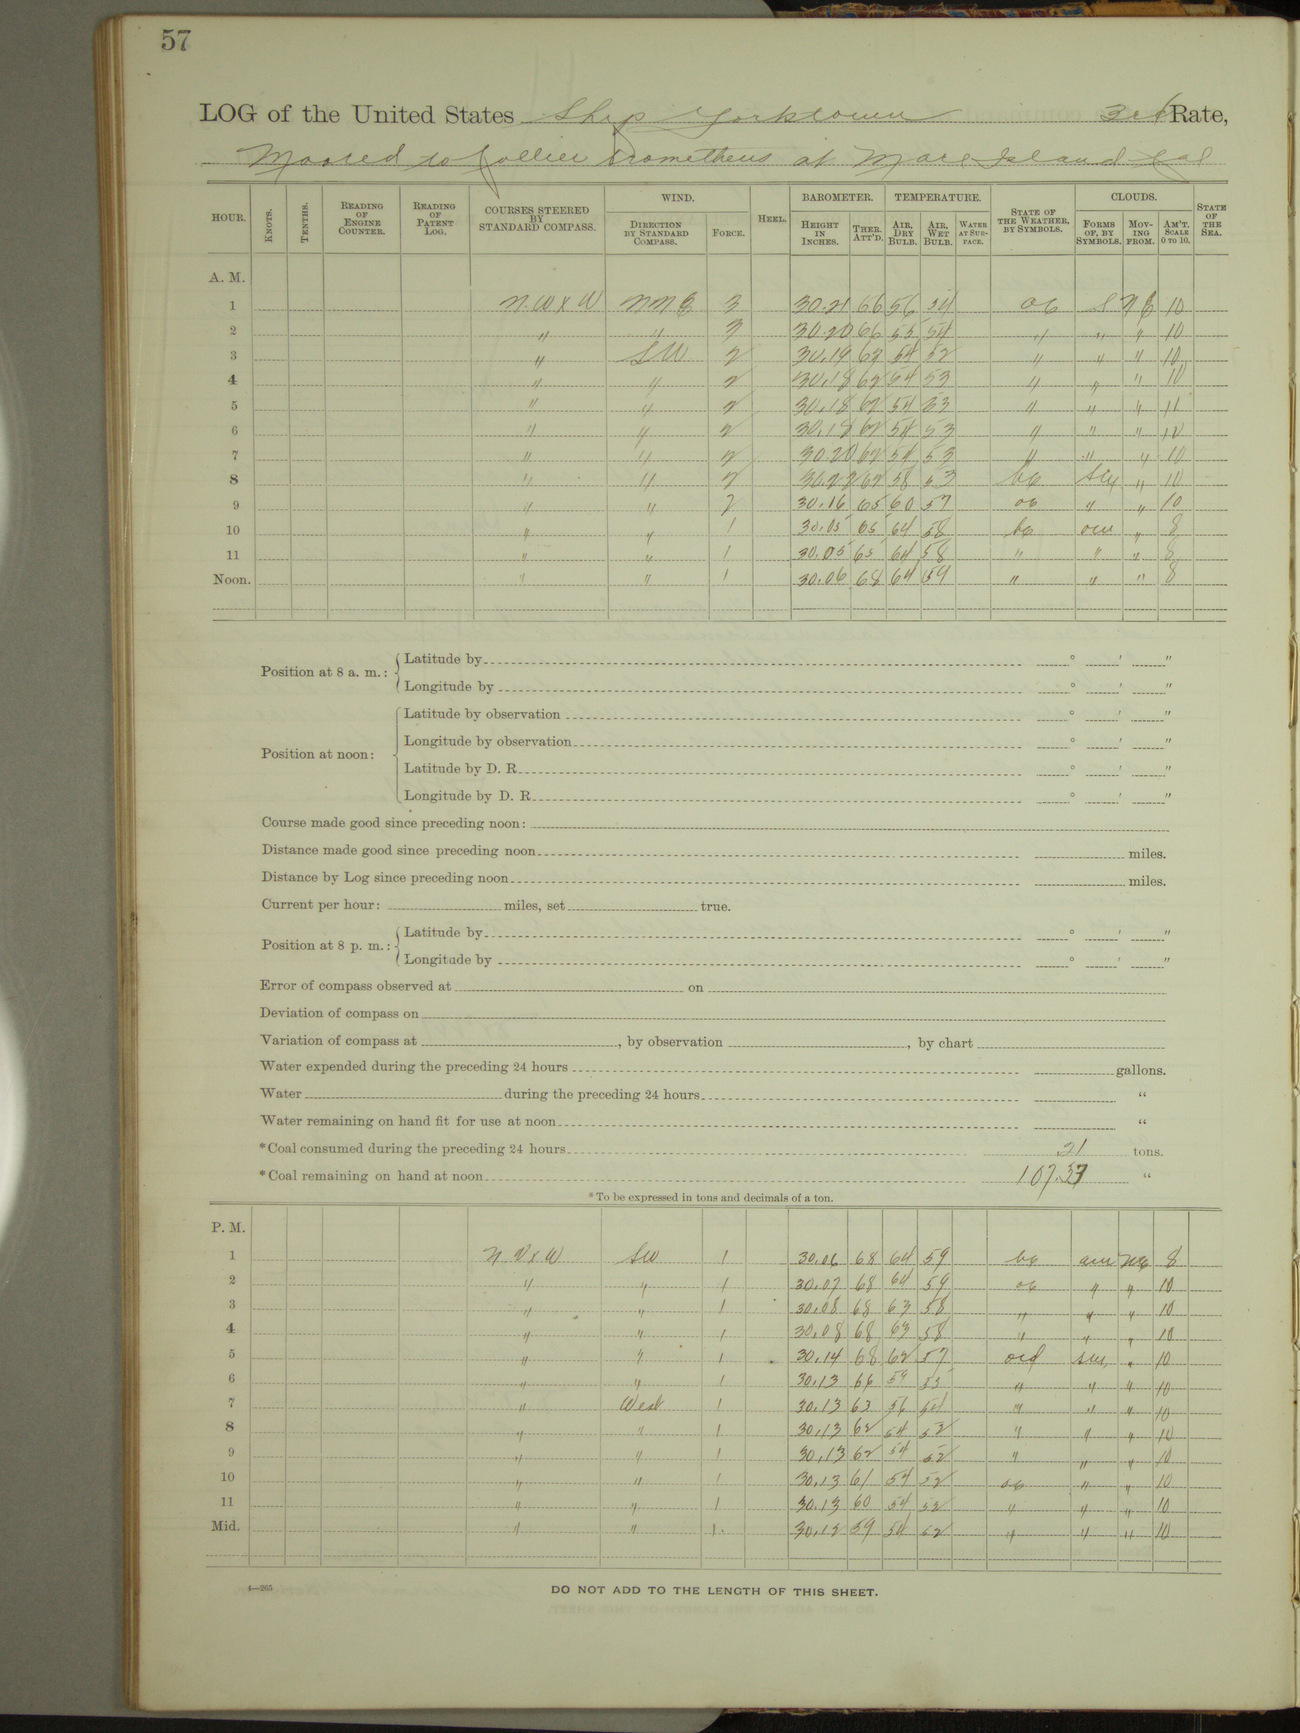 57
LOG of the United States Ship Yorktown 3rd Rate,
Moored to Collier Prometheus at Mare Island Cal
HOUR. KNOTS. TENTHS. READING OF ENGINE COUNTER. READING OF PATENT LOG. COURSES STEERED BY STANDARD COMPASS. WIND. DIRECTION BY STANDARD COMPASS. FORCE. HEEL. BAROMETER. HEIGHT IN INCHES. THER. ATT'D. TEMPERATURE. AIR, DRY BULB. AIR, WET BULB. WATER AT SURFACE. STATE OF THE WEATHER, BY SYMBOLS. CLOUDS. FORMS OF, BY SYMBOLS. MOVING FROM. AM'T. SCALE 0 TO 10. STATE OF THE SEA.
A. M.
1 N.W x W NNE 3 30.21 66 56 54 oc S NE 10
2 " " 3 30.20 66 55 54 " " " 10
3 " SW 2 30.19 63 54 52 " " " 10
4 " " 2 30.18 62 54 53 " " " 10
5 " " 2 30.18 62 54 53 " " "
6 " " 2 30.18 62 54 53 " " " 10
7 " " 2 30.20 62 54 53 " " " 10
8 " " 2 30.22 62 58 53 bc " 10
9 " " 2 30.16 65 60 57 oc " " 10
10 " " 1 30.05 65 64 58 bc " 8
11 " " 1 30.05 65 64 58 " " " 8
Noon. " " 1 30.06 68 64 59 " " " 8
Position at 8 a. m.: Latitude by ° ' "
Longitude by ° ' "
Position at noon: Latitude by observation ° ' "
Longitude by observation ° ' "
Latitude by D. R. ° ' "
Longitude by D. R. ° ' "
Course made good since preceding noon:
Distance made good since preceding noon miles.
Distance by Log since preceding noon miles.
Current per hour: miles, set true.
Position at 8 p. m.: Latitude by ° ' "
Longitude by ° ' "
Error of compass observed at on
Deviation of compass on
Variation of compass at , by observation , by chart
Water expended during the preceding 24 hours gallons.
Water during the preceding 24 hours "
Water remaining on hand fit for use at noon "
*Coal consumed during the preceding 24 hours 21 tons.
*Coal remaining on hand at noon 107.37 "
*To be expressed in tons and decimals of a ton.
P. M.
1 N.W x W SW 1 30.06 68 64 59 bc NE 8
2 " " 1 30.07 68 64 59 oc " " 10
3 " " 1 30.08 68 63 58 " " " 10
4 " " 1 30.08 68 63 58 " " " 10
5 " " 1 30.14 68 62 57 ocd " 10
6 " " 1 30.13 66 59 55 " " " 10
7 " West 1 30.13 63 56 54 " " " 10
8 " " 1 30.13 62 54 52 " " " 10
9 " " 1 30.13 62 54 52 " " " 10
10 " " 1 30.13 61 54 52 oc " " 10
11 " " 1 30.13 60 54 52 " " " 10
Mid. " " 1. 30.12 59 54 52 " " " 10
4—265
DO NOT ADD TO THE LENGTH OF THIS SHEET.